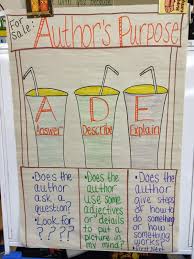 For Sale:
Author's Purpose
A D E
Answer Describe Explain
• Does the
author
ask a
question?
• Look for
? ? ? ?
• Does the
author use
some
adjectives
or details
to put a
picture in
my mind?
• Does the
author
give steps of
how to
do something
or how
something
works?